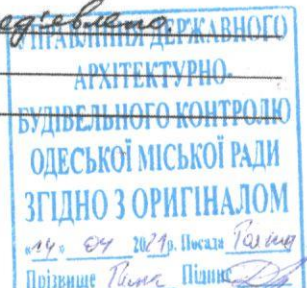 УПРАВЛІННЯ ДЕРЖАВНОГО
АРХІТЕКТУРНО-
БУДІВЕЛЬНОГО КОНТРОЛЮ
ОДЕСЬКОЇ МІСЬКОЇ РАДИ
ЗГІДНО З ОРИГІНАЛОМ
«14» 04 2021р. Посада
Прізвище Підпис